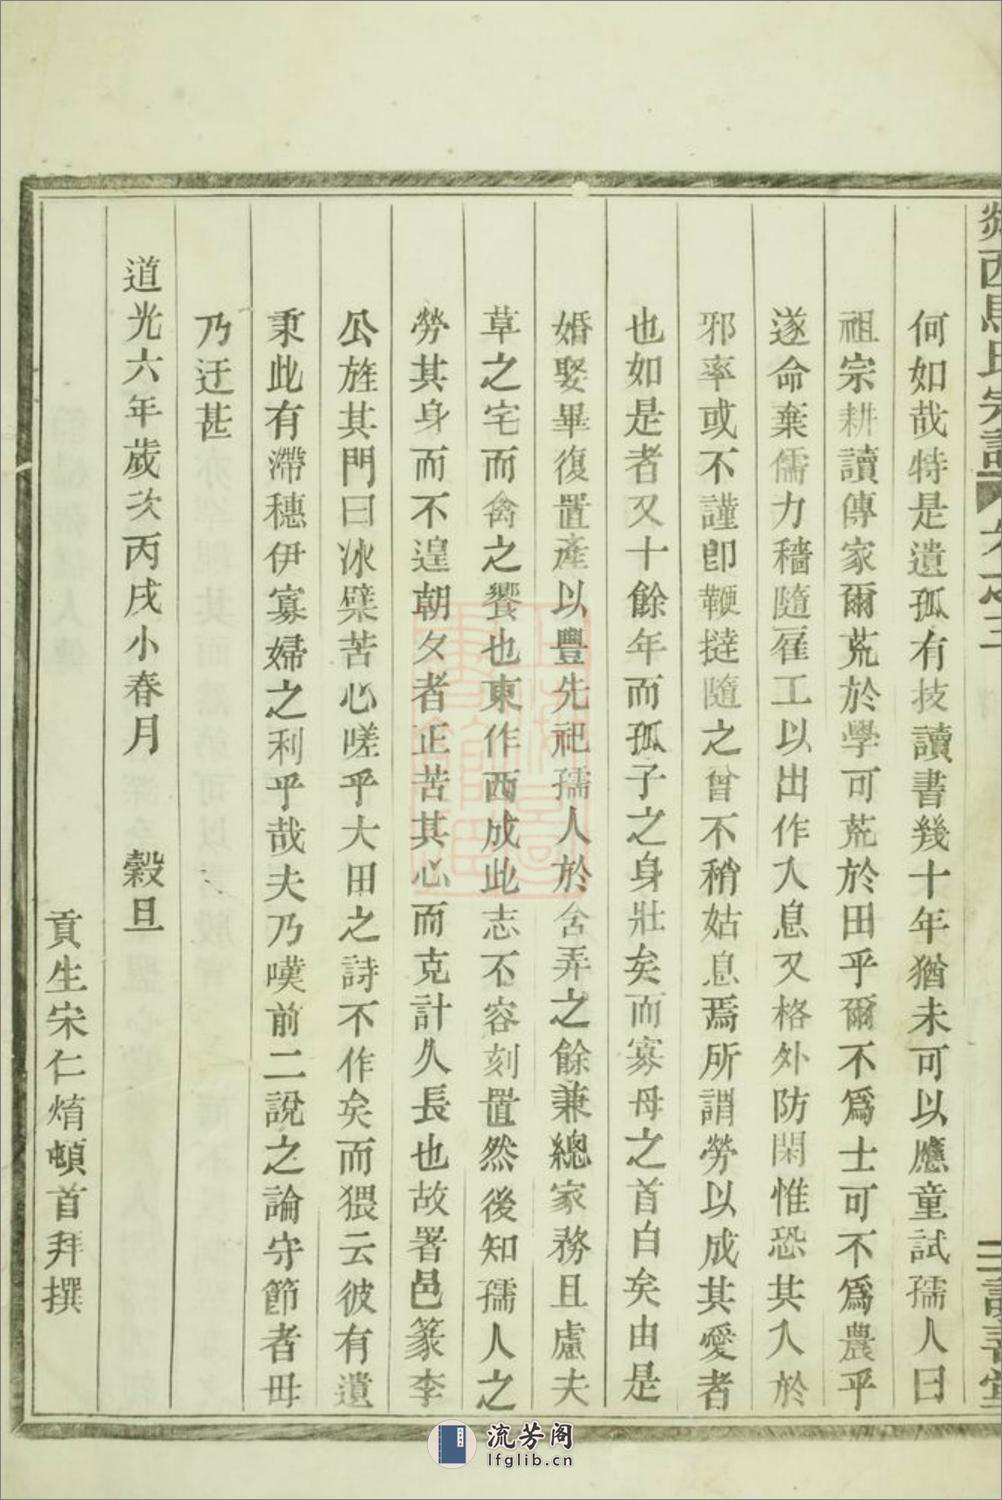 何如哉特是遺孤有技讀書幾十年猶未可以應童試孺人曰
祖宗耕讀傳家爾荒於學可荒於田乎爾不爲士可不爲農乎
遂命棄儒力穡隨雇工以出作入息又格外防閑惟恐其入於
邪率或不謹卽鞭撻隨之曾不稍姑息焉所謂勞以成其愛者
也如是者又十餘年而孤子之身壯矣而寡母之首白矣由是
婚娶畢復置產以豐先祀孺人於含弄之餘兼總家務且慮夫
草之宅而禽之饗也東作西成此志不容刻置然後知孺人之
勞其身而不遑朝夕者正苦其心而克計久長也故署邑篆李
公旌其門曰冰檗苦心嗟乎大田之詩不作矣而猥云彼有遺
秉此有滯穗伊寡婦之利乎哉夫乃嘆前二說之論守節者毋
乃迂甚
道光六年歲次丙戌小春月 穀旦
貢生宋仁焴頓首拜撰
西馬氏宗譜
流芳阁
lfglib.cn